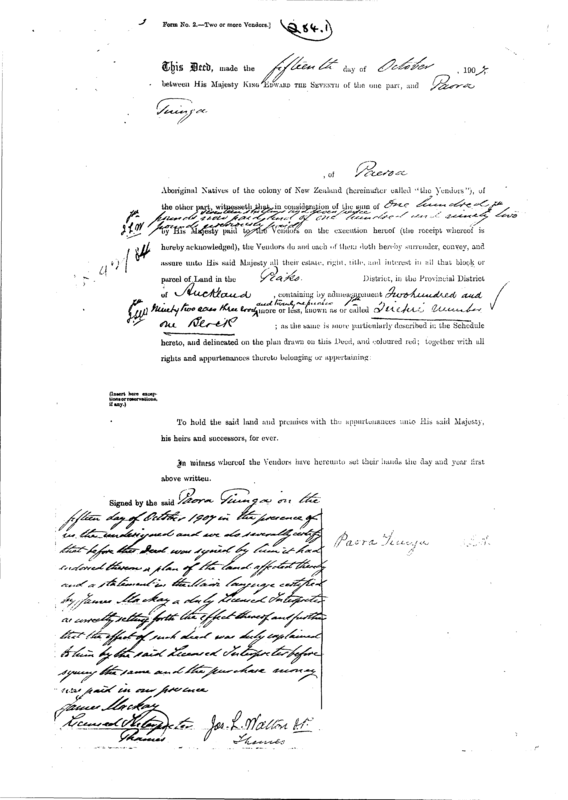 Form No. 2.—Two or more Vendors.] 284.1
This Deed, made the fifteenth day of October, 1907,
between His Majesty KING EDWARD THE SEVENTH of the one part, and Paora
, of Paeroa
Aboriginal Natives of the colony of New Zealand (hereinafter called "the Vendors"), of
the other part, witnesseth that in consideration of the sum of One hundred
pounds
by His Majesty paid to the Vendors on the execution hereof (the receipt whereof is
hereby acknowledged), the Vendors do and each of them doth hereby surrender, convey, and
assure unto His said Majesty all their estate, right, title, and interest in all that block or
parcel of Land in the Piako District, in the Provincial District
of Auckland, containing by admeasurement Two hundred and
Ninety two acres three roods and twenty more or less, known as or called number
one Block ; as the same is more particularly described in the Schedule
hereto, and delineated on the plan drawn on this Deed, and coloured red; together with all
rights and appurtenances thereto belonging or appertaining:
(Insert here exceptions or reservations, if any.)
To hold the said land and premises with the appurtenances unto His said Majesty,
his heirs and successors, for ever.
In witness whereof the Vendors have hereunto set their hands the day and year first
above written.
Signed by the said Paora on the
fifteen day of October 1907 in the presence of
us the undersigned and we do severally certify
that before this Deed was signed by him it had
endorsed thereon a plan of the land affected thereby
and a statement in the Maori language certified
by James Mackay a duly Licensed Interpreter
as correctly setting forth the effect thereof and further
that the effect of such deed was duly explained
to him by the said Licensed Interpreter before
signing the same and the purchase money
was paid in our presence
James Mackay
Licensed Interpreter
Thames
Jos. L. Walton J.P.
Thames
Paora